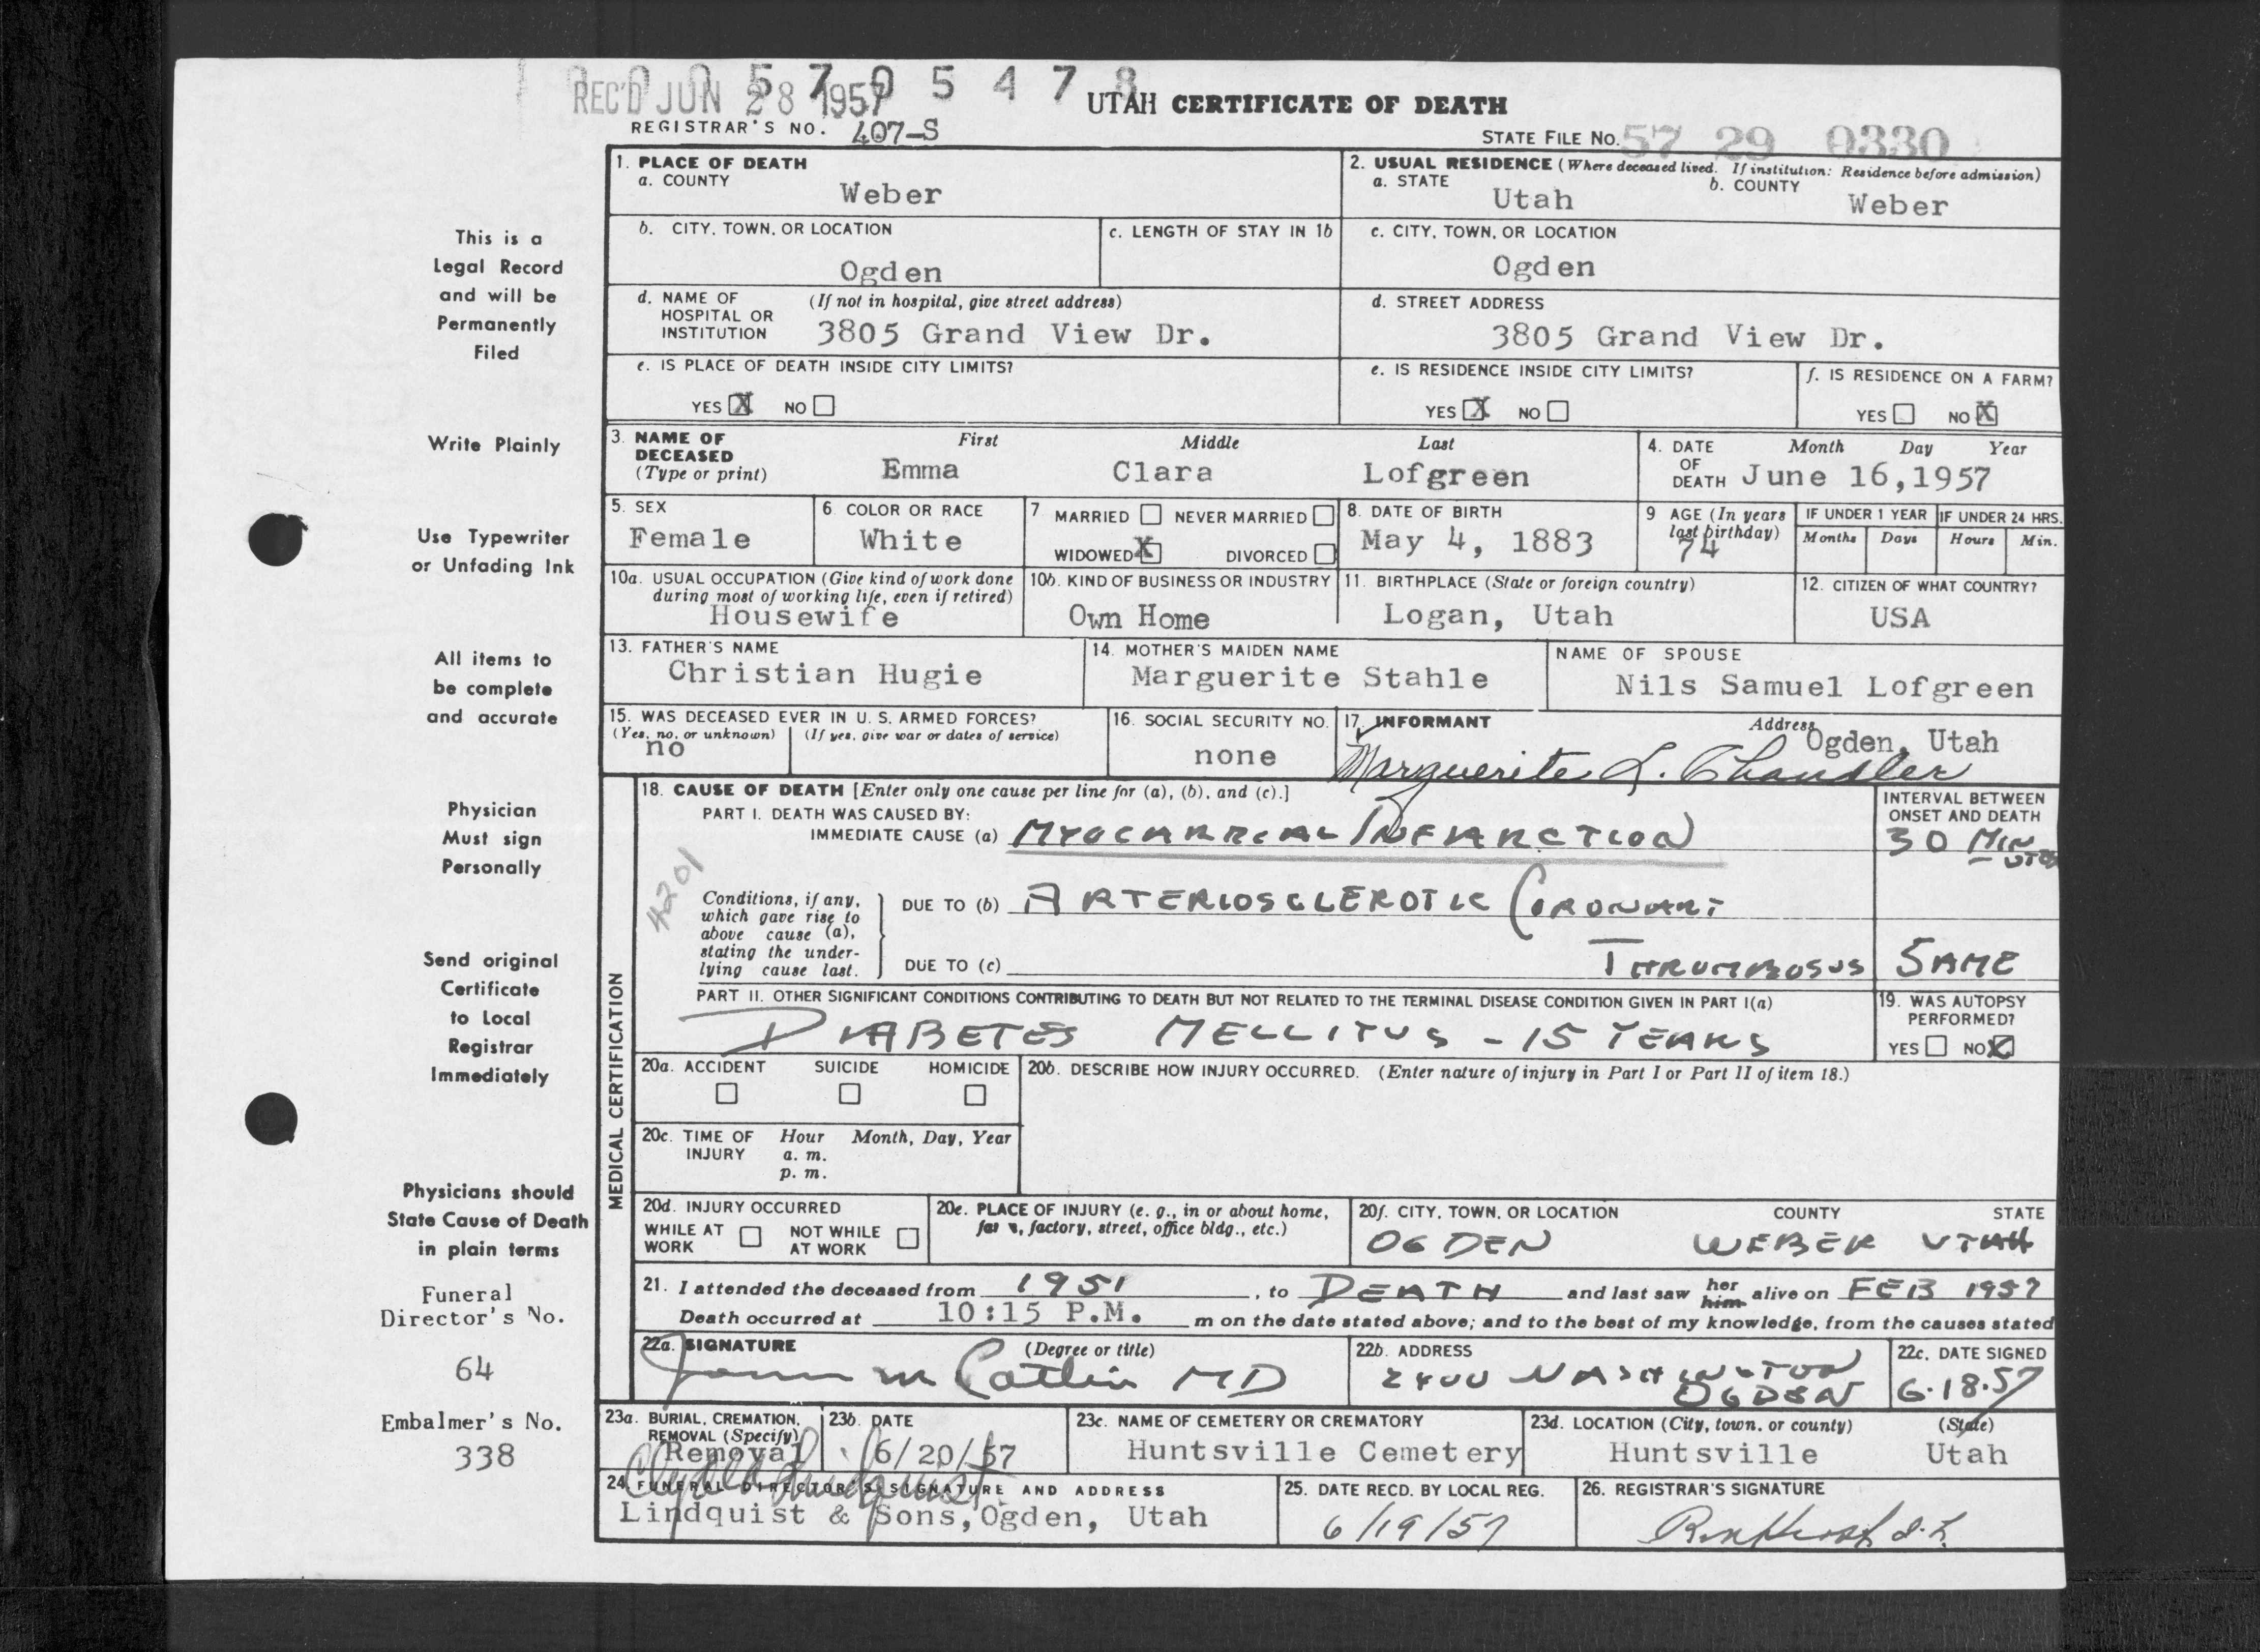 REC'D JUN 28 1957
0 0 5 7 0 5 4 7 8
UTAH CERTIFICATE OF DEATH
REGISTRAR'S NO. 407-S
STATE FILE NO. 57 29 0330
1. PLACE OF DEATH
a. COUNTY
Weber
2. USUAL RESIDENCE (Where deceased lived. If institution: Residence before admission)
a. STATE
Utah
b. COUNTY
Weber
b. CITY, TOWN, OR LOCATION
Ogden
c. LENGTH OF STAY IN 1b
c. CITY, TOWN, OR LOCATION
Ogden
d. NAME OF HOSPITAL OR INSTITUTION
(If not in hospital, give street address)
3805 Grand View Dr.
d. STREET ADDRESS
3805 Grand View Dr.
e. IS PLACE OF DEATH INSIDE CITY LIMITS?
YES X NO
e. IS RESIDENCE INSIDE CITY LIMITS?
YES X NO
f. IS RESIDENCE ON A FARM?
YES NO X
3. NAME OF DECEASED
(Type or print)
First Middle Last
Emma Clara Lofgreen
4. DATE OF DEATH
Month Day Year
June 16,1957
5. SEX
Female
6. COLOR OR RACE
White
7 MARRIED NEVER MARRIED
WIDOWED X DIVORCED
8. DATE OF BIRTH
May 4, 1883
9 AGE (In years last birthday)
74
IF UNDER 1 YEAR
Months Days
IF UNDER 24 HRS.
Hours Min.
10a. USUAL OCCUPATION (Give kind of work done during most of working life, even if retired)
Housewife
10b. KIND OF BUSINESS OR INDUSTRY
Own Home
11. BIRTHPLACE (State or foreign country)
Logan, Utah
12. CITIZEN OF WHAT COUNTRY?
USA
13. FATHER'S NAME
Christian Hugie
14. MOTHER'S MAIDEN NAME
Marguerite Stahle
NAME OF SPOUSE
Nils Samuel Lofgreen
15. WAS DECEASED EVER IN U. S. ARMED FORCES?
(Yes, no, or unknown) (If yes, give war or dates of service)
no
16. SOCIAL SECURITY NO.
none
17. INFORMANT
Address
Ogden, Utah
Marguerite L. Chandler
18. CAUSE OF DEATH [Enter only one cause per line for (a), (b), and (c).]
PART I. DEATH WAS CAUSED BY:
IMMEDIATE CAUSE (a) MYOCARDIAL INFARCTION
INTERVAL BETWEEN ONSET AND DEATH
30 MINUTES
4201
Conditions, if any, which gave rise to above cause (a), stating the underlying cause last.
DUE TO (b) ARTERIOSCLEROTIC CORONARY
DUE TO (c) THROMBOSUS
SAME
PART II. OTHER SIGNIFICANT CONDITIONS CONTRIBUTING TO DEATH BUT NOT RELATED TO THE TERMINAL DISEASE CONDITION GIVEN IN PART I(a)
DIABETES MELLITUS - 15 YEARS
19. WAS AUTOPSY PERFORMED?
YES NO X
MEDICAL CERTIFICATION
20a. ACCIDENT SUICIDE HOMICIDE
20b. DESCRIBE HOW INJURY OCCURRED. (Enter nature of injury in Part I or Part II of item 18.)
20c. TIME OF INJURY
Hour Month, Day, Year
a. m.
p. m.
20d. INJURY OCCURRED
WHILE AT WORK NOT WHILE AT WORK
20e. PLACE OF INJURY (e. g., in or about home, farm, factory, street, office bldg., etc.)
20f. CITY, TOWN, OR LOCATION COUNTY STATE
OGDEN WEBER UTAH
21. I attended the deceased from 1951, to DEATH and last saw her him alive on FEB 1957
Death occurred at 10:15 P.M. m on the date stated above; and to the best of my knowledge, from the causes stated
22a. SIGNATURE (Degree or title)
Catlin MD
22b. ADDRESS
2400 WASHINGTON
OGDEN
22c. DATE SIGNED
6-18-57
23a. BURIAL, CREMATION, REMOVAL (Specify)
Removal
23b. DATE
6/20/57
23c. NAME OF CEMETERY OR CREMATORY
Huntsville Cemetery
23d. LOCATION (City, town, or county) (State)
Huntsville Utah
24. FUNERAL DIRECTOR'S SIGNATURE AND ADDRESS
Lindquist & Sons, Ogden, Utah
25. DATE RECD. BY LOCAL REG.
6/19/57
26. REGISTRAR'S SIGNATURE
This is a
Legal Record
and will be
Permanently
Filed
Write Plainly
Use Typewriter
or Unfading Ink
All items to
be complete
and accurate
Physician
Must sign
Personally
Send original
Certificate
to Local
Registrar
Immediately
Physicians should
State Cause of Death
in plain terms
Funeral
Director's No.
64
Embalmer's No.
338